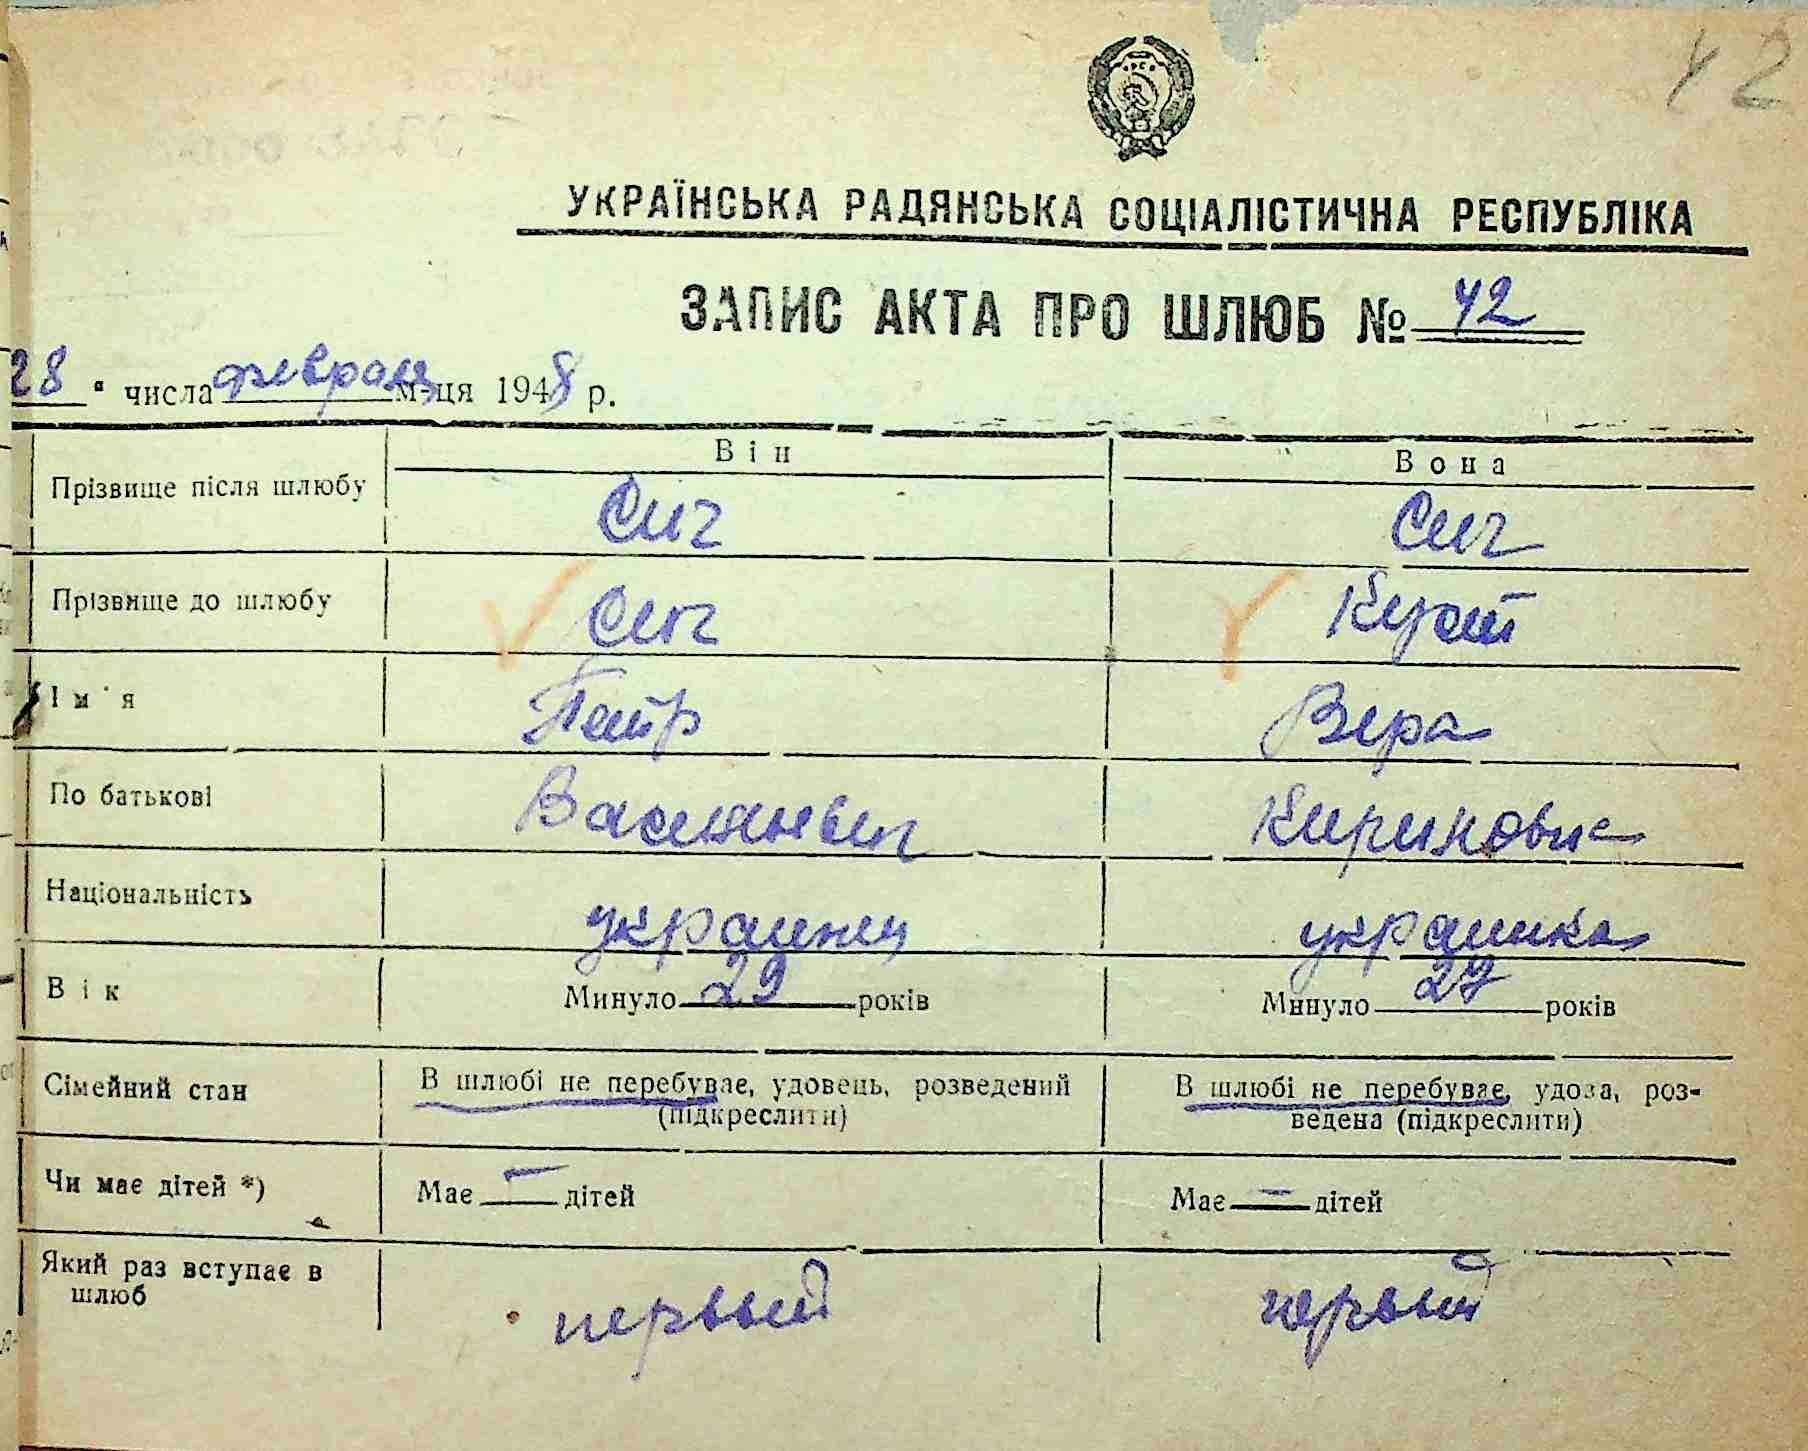 42
УКРАЇНСЬКА РАДЯНСЬКА СОЦІАЛІСТИЧНА РЕСПУБЛІКА
ЗАПИС АКТА ПРО ШЛЮБ № 42
28 " числа февраля м-ця 1948 р.
Він Вона
Прізвище після шлюбу Сич Сич
Прізвище до шлюбу Сич Куст
Ім'я Петр Вера
По батькові Васильевич Кириловна
Національність украинец украинка
Вік Минуло 29 років Минуло 27 років
Сімейний стан В шлюбі не перебуває, удовець, розведений В шлюбі не перебуває, удова, роз-
(підкреслити) ведена (підкреслити)
Чи має дітей *) Має — дітей Має — дітей
Який раз вступає в
шлюб первый первый